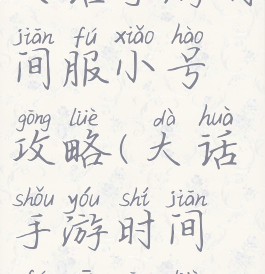 jiān fú xiǎo hào
间服小号
gōng lüè dà huà
攻略(大话
shǒu yóu shí jiān
手游时间